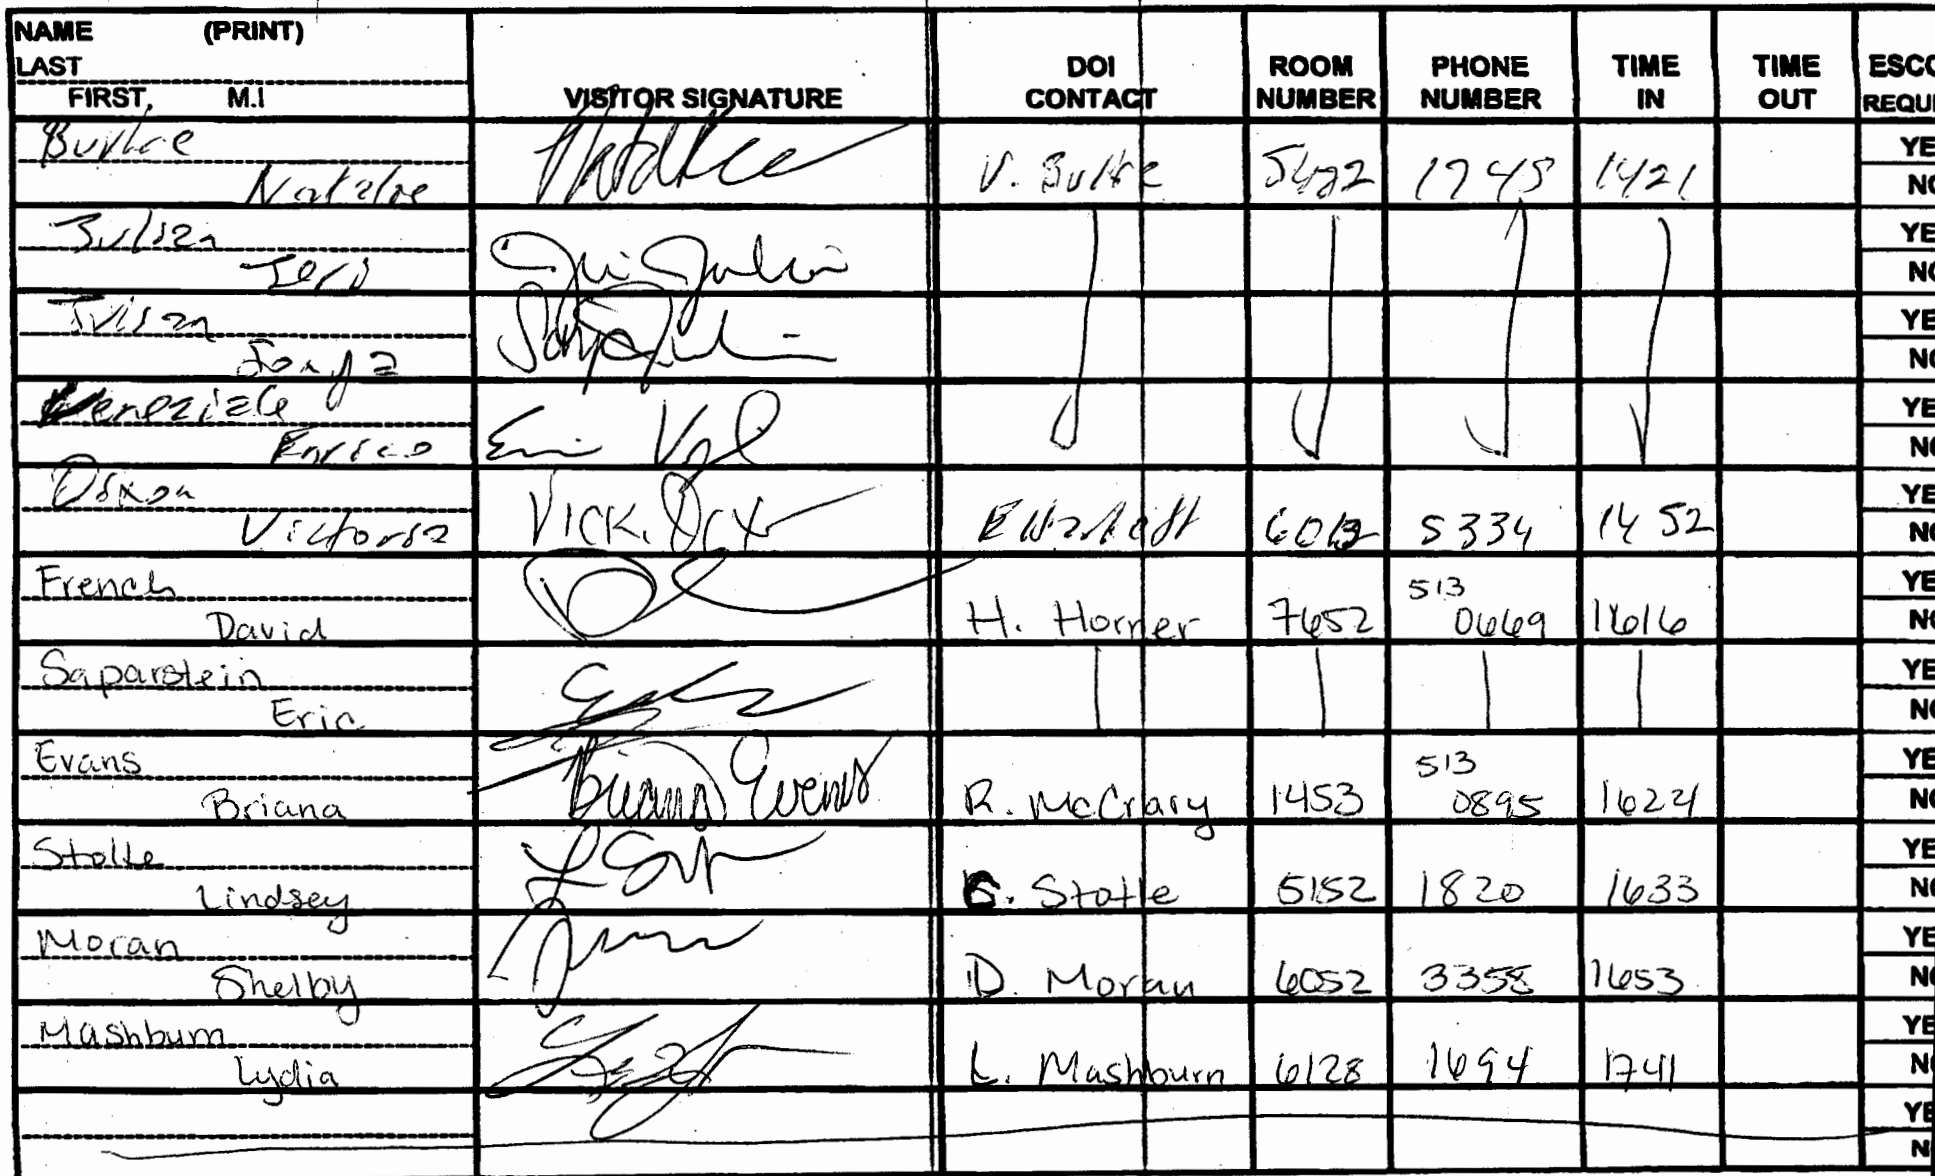 NAME (PRINT)
LAST
FIRST, M.I
VISITOR SIGNATURE
DOI CONTACT
ROOM NUMBER
PHONE NUMBER
TIME IN
TIME OUT
Burke
Natalie V. Burke 1745 1421 NO
YE
Julian
Jeri
YE
NO
Julian
Sonya
YE
NO
Veneziale
Enrico
YE
NO
Dixon
Victoria 5334 1452 NO
YE
French
David H. Horner 7652 513 0669 1616 NO
YE
Saparstein
Eric
YE
NO
Evans
Briana Briana Evans R. McCrary 1453 513 0895 1622 NO
YE
Stolte
Lindsey 5152 1820 1633 NO
YE
Moran
Shelby D. Moran 6052 3358 1653 NO
YE
Mashburn
Lydia L. Mashburn 6128 1694 1741
YE